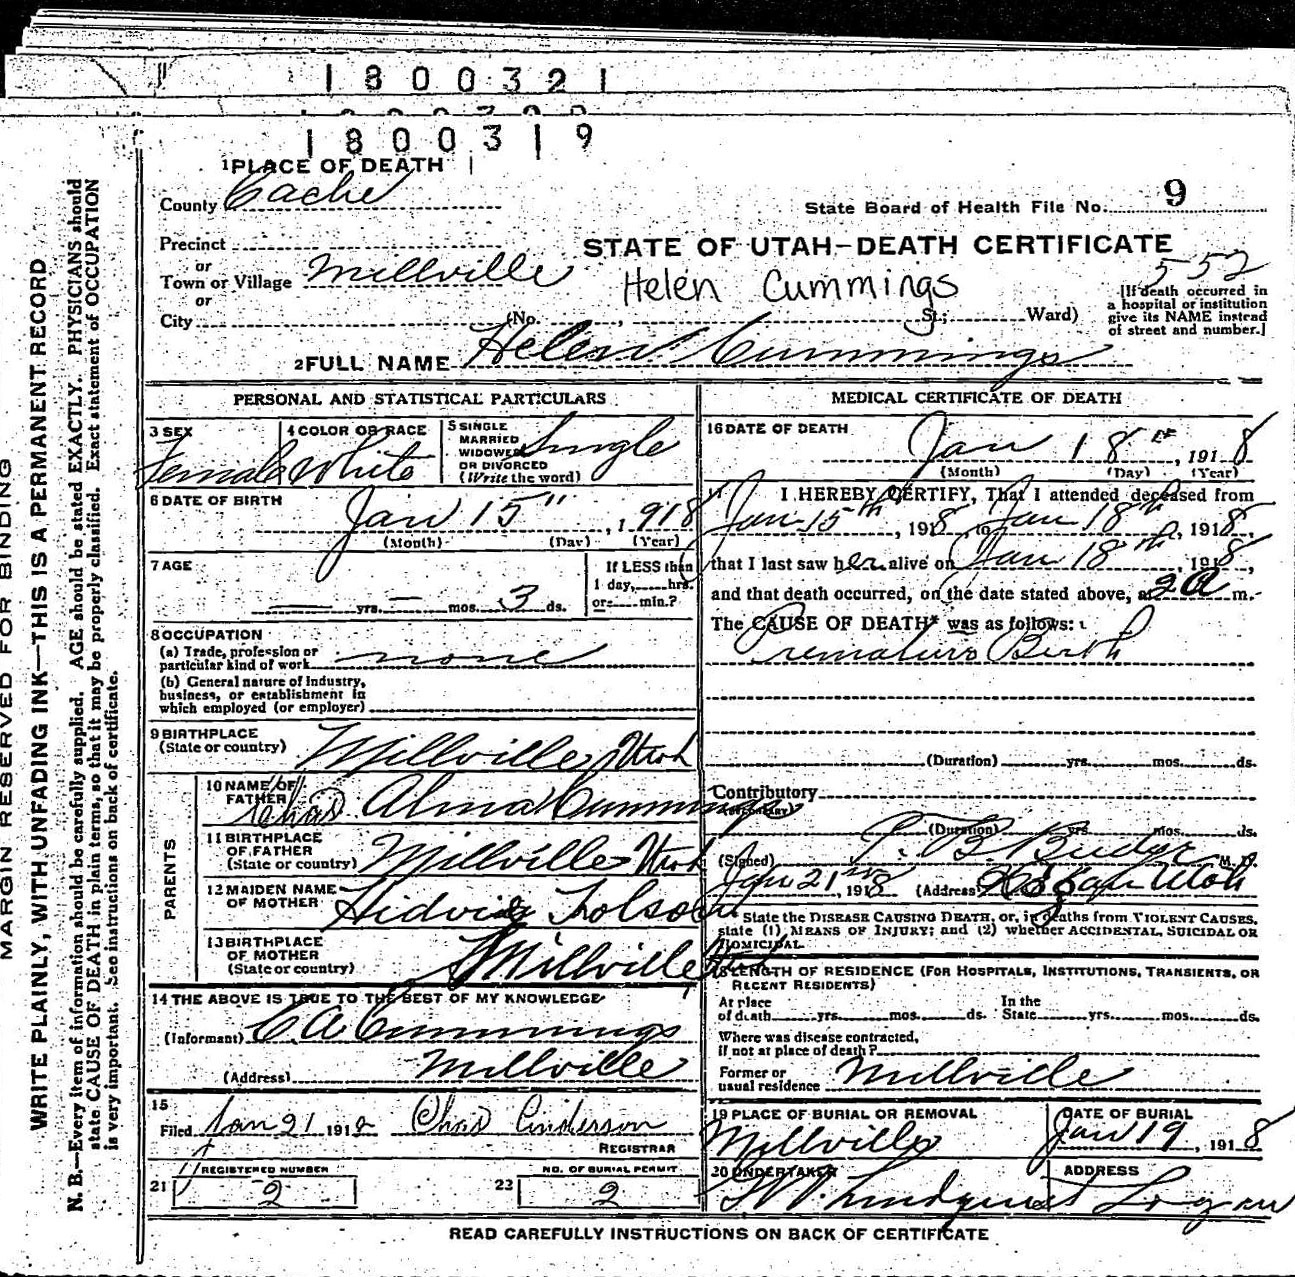 1800321
1800319
1 PLACE OF DEATH
County Cache
State Board of Health File No. 9
Precinct
STATE OF UTAH—DEATH CERTIFICATE
or
Town or Village Millville
Helen Cummings
552
or
City (No. , St.; Ward)
[If death occurred in a hospital or institution give its NAME instead of street and number.]
2 FULL NAME Helen Cummings
PERSONAL AND STATISTICAL PARTICULARS
3 SEX Female
4 COLOR OR RACE White
5 SINGLE MARRIED WIDOWED OR DIVORCED (Write the word) Single
6 DATE OF BIRTH Jan 15th, 1918
(Month) (Day) (Year)
7 AGE — yrs. — mos. 3 ds.
If LESS than 1 day, hrs. or min.?
8 OCCUPATION
(a) Trade, profession or particular kind of work none
(b) General nature of industry, business, or establishment in which employed (or employer)
9 BIRTHPLACE (State or country) Millville Utah
PARENTS
10 NAME OF FATHER Chas Alma Cummings
11 BIRTHPLACE OF FATHER (State or country) Millville Utah
12 MAIDEN NAME OF MOTHER
13 BIRTHPLACE OF MOTHER (State or country) Millville Utah
14 THE ABOVE IS TRUE TO THE BEST OF MY KNOWLEDGE
(Informant) C A Cummings
(Address) Millville
15
Filed Jan 21 191 Chas Anderson
REGISTRAR
21 REGISTERED NUMBER 2
22 NO. OF BURIAL PERMIT 2
MEDICAL CERTIFICATE OF DEATH
16 DATE OF DEATH
Jan 18th, 1918
(Month) (Day) (Year)
17 I HEREBY CERTIFY, That I attended deceased from
Jan 15th, 1918, to Jan 18th, 1918,
that I last saw her alive on Jan 18th, 1918,
and that death occurred, on the date stated above, at 2 a m.
The CAUSE OF DEATH* was as follows:
Premature Birth
(Duration) yrs. mos. ds.
Contributory
(SECONDARY)
(Duration) yrs. mos. ds.
(Signed) Budge M. D.
Jan 21st, 1918 (Address) Logan Utah
State the DISEASE CAUSING DEATH, or, in deaths from VIOLENT CAUSES, state (1) MEANS OF INJURY; and (2) whether ACCIDENTAL, SUICIDAL OR HOMICIDAL.
18 LENGTH OF RESIDENCE (FOR HOSPITALS, INSTITUTIONS, TRANSIENTS, OR RECENT RESIDENTS)
At place of death yrs. mos. ds. In the State yrs. mos. ds.
Where was disease contracted, if not at place of death?
Former or usual residence Millville
19 PLACE OF BURIAL OR REMOVAL Millville
DATE OF BURIAL Jan 19, 1918
20 UNDERTAKER Lindquist
ADDRESS Logan
READ CAREFULLY INSTRUCTIONS ON BACK OF CERTIFICATE
MARGIN RESERVED FOR BINDING
WRITE PLAINLY, WITH UNFADING INK—THIS IS A PERMANENT RECORD
N. B.—Every item of information should be carefully supplied. AGE should be stated EXACTLY. PHYSICIANS should
state CAUSE OF DEATH in plain terms, so that it may be properly classified. Exact statement of OCCUPATION
is very important. See instructions on back of certificate.